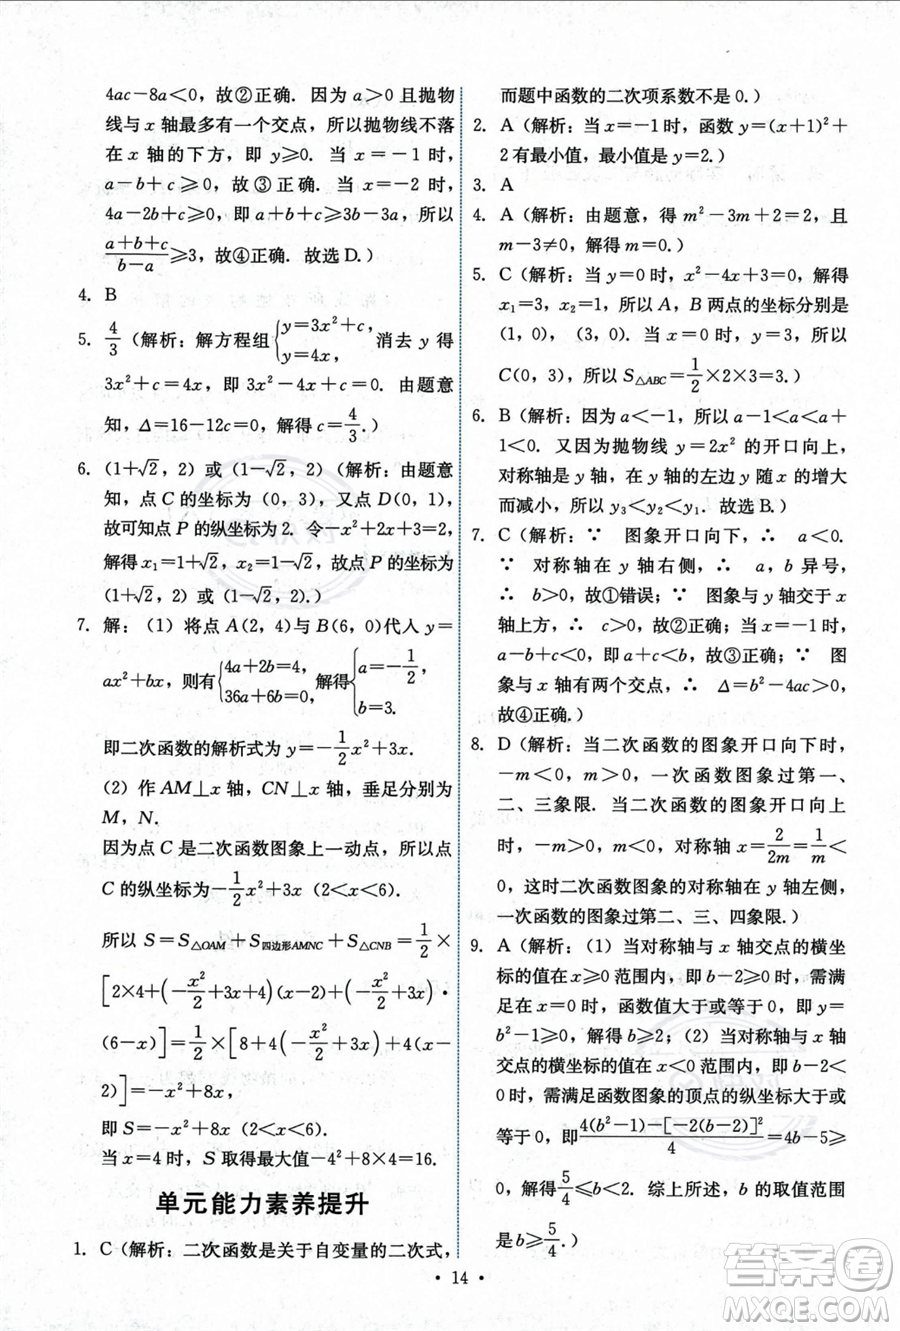 4ac－8a＜0，故②正确．因为 a＞0 且抛物
线与 x 轴最多有一个交点，所以抛物线不落
在 x 轴的下方，即 y≥0．当 x＝－1 时，
a－b＋c≥0，故③正确．当 x＝－2 时，
4a－2b＋c≥0，即 a＋b＋c≥3b－3a，所以
(a＋b＋c)/(b－a)≥3，故④正确．故选 D.）
4. B
5. 4/3（解析：解方程组{y＝3x²＋c，y＝4x，消去 y 得
3x²－4x＋c＝0，即 3x²－4x＋c＝0．由题意
知，Δ＝16－12c＝0，解得 c＝4/3.）
6. （1＋√2，2）或（1－√2，2）（解析：由题意
知，点 C 的坐标为（0，3），又点 D(0，1)，
故可知点 P 的纵坐标为 2．令－x²＋2x＋3＝2，
解得 x₁＝1＋√2，x₂＝1－√2，故点 P 的坐标为
（1＋√2，2）或（1－√2，2）.）
7. 解：（1）将点 A(2，4)与 B(6，0)代入 y＝
ax²＋bx，则有{4a＋2b＝4，36a＋6b＝0，解得{a＝－1/2，b＝3.
即二次函数的解析式为 y＝－1/2x²＋3x.
（2）作 AM⊥x 轴，CN⊥x 轴，垂足分别为
M，N.
因为点 C 是二次函数图象上一动点，所以点
C 的纵坐标为－1/2x²＋3x（2＜x＜6）.
所以 S＝S△OAM＋S四边形AMNC＋S△CNB＝1/2×
[2×4＋(－x²/2＋3x＋4)(x－2)＋(－x²/2＋3x)·
(6－x)]＝1/2×[8＋4(－x²/2＋3x)＋4(x－
2)]＝－x²＋8x.
即 S＝－x²＋8x（2＜x＜6）.
当 x＝4 时，S 取得最大值－4²＋8×4＝16.
单元能力素养提升
1. C（解析：二次函数是关于自变量的二次式，
而题中函数的二次项系数不是 0.）
2. A（解析：当 x＝－1 时，函数 y＝(x＋1)²＋
2 有最小值，最小值是 y＝2.）
3. A
4. A（解析：由题意，得 m²－3m＋2＝2，且
m－3≠0，解得 m＝0.）
5. C（解析：当 y＝0 时，x²－4x＋3＝0，解得
x₁＝3，x₂＝1，所以 A，B 两点的坐标分别是
(1，0)，(3，0)．当 x＝0 时，y＝3，所以
C(0，3)，所以 S△ABC＝1/2×2×3＝3.）
6. B（解析：因为 a＜－1，所以 a－1＜a＜a＋
1＜0．又因为抛物线 y＝2x² 的开口向上，
对称轴是 y 轴，在 y 轴的左边 y 随 x 的增大
而减小，所以 y₃＜y₂＜y₁．故选 B.）
7. C（解析：∵ 图象开口向下，∴ a＜0.
∵ 对称轴在 y 轴右侧，∴ a，b 异号，
∴ b＞0，故①错误；∵ 图象与 y 轴交于 x
轴上方，∴ c＞0，故②正确；当 x＝－1 时，
y＜0，∴ a＋c＜b，故③正确；∵ 图
象与 x 轴有两个交点，∴ Δ＝b²－4ac＞0，
故④正确.）
8. D（解析：当二次函数的图象开口向下时，
－m＜0，m＞0，一次函数图象过第一、
二、三象限．当二次函数的图象开口向上
时，－m＞0，m＜0，对称轴 x＝2/2m＝1/m＜
0，这时二次函数图象的对称轴在 y 轴左侧，
一次函数的图象过第二、三、四象限.）
9. A（解析：（1）当对称轴与 x 轴交点的横坐
标的值在 x≥0 范围内，即 b－2≥0 时，需满
足在 x＝0 时，函数值大于或等于 0，即
b²－1≥0，解得 b≥2；（2）当对称轴与 x 轴
交点的横坐标的值在 x＜0 范围内，即 b－2＜
0 时，需满足函数图象的顶点的纵坐标大于或
等于 0，即(4(b²－1)－[－2(b－2)]²)/4＝4b－5≥
0，解得 5/4≤b＜2．综上所述，b 的取值范围
是 b≥5/4.）
· 14 ·
答案圈
MXQE.COM